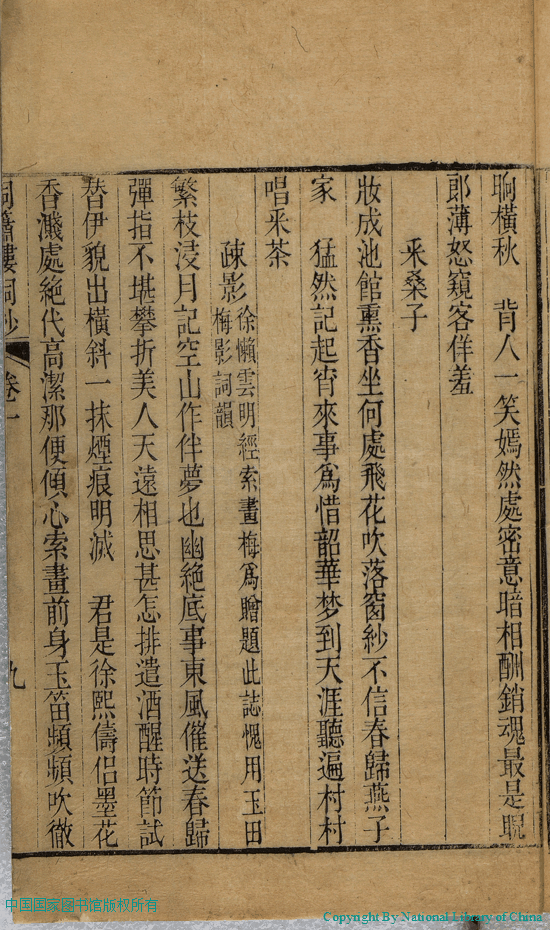 晌橫秋　背人一笑嫣然處密意暗相酬銷魂最是睨
郎薄怒窺客佯羞
采桑子
妝成池館熏香坐何處飛花吹落窗紗不信春歸燕子
家　猛然記起宵來事爲惜韶華梦到天涯聽遍村村
唱采茶
疎影
徐懶雲明經索畫梅爲贈題此誌愧用玉田
梅影詞韻
繁枝浸月記空山作伴夢也幽絕底事東風催送春歸
彈指不堪攀折美人天遠相思甚怎排遣酒醒時節試
替伊貌出橫斜一抹煙痕明滅　君是徐熙儔侶墨花
香濺處絕代高潔那便傾心索畫前身玉笛頻頻吹徹
洞簫樓詞鈔
卷一
九
中国国家图书馆版权所有
Copyright By National Library of China